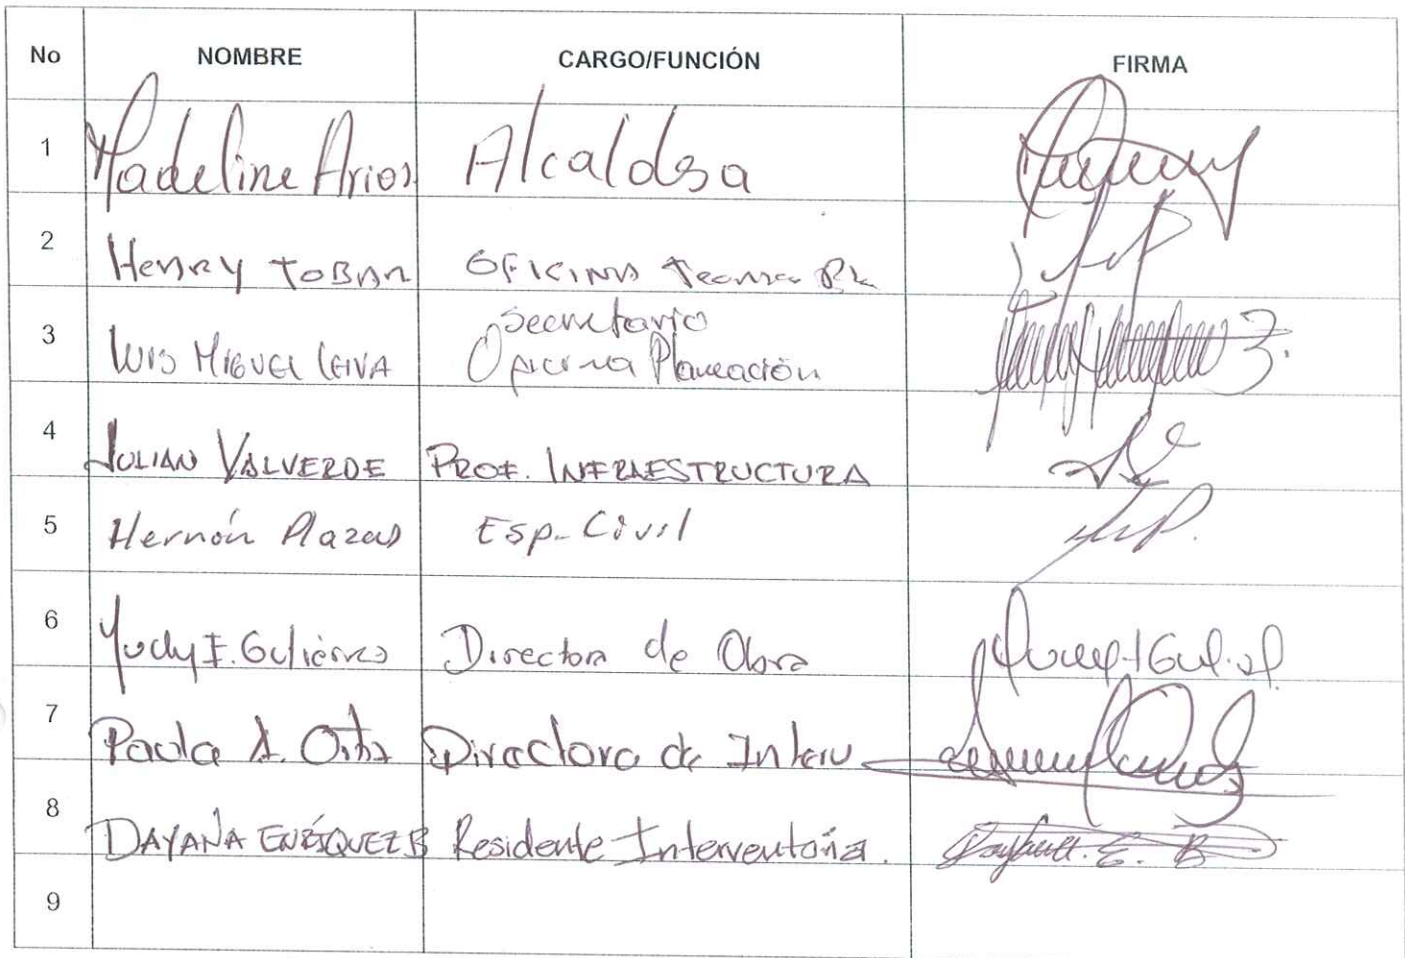 No NOMBRE CARGO/FUNCIÓN FIRMA
1 Madeline Arias Alcaldesa
2 HENRY TOBAR OFICINA Tecnica
3 LUIS MIGUEL LEIVA Secretario
Oficina Planeación
4 JULIAN VALVERDE PROF. INFRAESTRUCTURA
5 Hernán Plazas Esp. Civil
6 Yudy I. Gutiérrez Directora de Obra
7 Paola A. Ortiz Directora de Interv
8 DAYANA ENRÍQUEZ B Residente Interventoría.
9